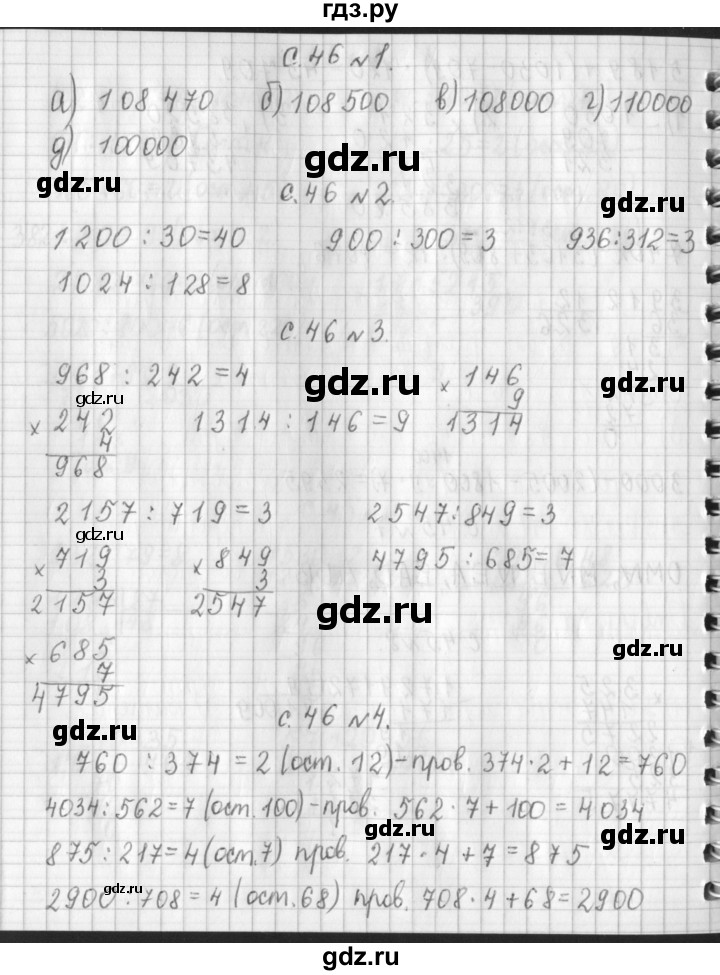 гдз.ру
с.46 №1.
а) 108 470 б) 108 500 в) 108000 г) 110000
д) 100000
gdz.ru
gdz.ru
gdz.ru
с.46 №2.
1200 : 30 = 40 900 : 300 = 3 936 : 312 = 3
1024 : 128 = 8
с.46 №3.
968 : 242 = 4
gdz.ru
gdz.ru
gdz.ru
× 146
9
1314
× 242
4
968
1314 : 146 = 9
2157 : 719 = 3 2547 : 849 = 3
gdz.ru
× 719
3
2157
× 849
3
2547
4795 : 685 = 7
gdz.ru
× 685
7
4795
gdz.ru
gdz.ru
с.46 №4.
760 : 374 = 2 (ост. 12) - пров. 374 · 2 + 12 = 760
4034 : 562 = 7 (ост. 100) - пров. 562 · 7 + 100 = 4034
gdz.ru
gdz.ru
875 : 217 = 4 (ост. 7) пров. 217 · 4 + 7 = 875
gdz.ru
2900 : 708 = 4 (ост. 68) пров. 708 · 4 + 68 = 2900
gdz.ru